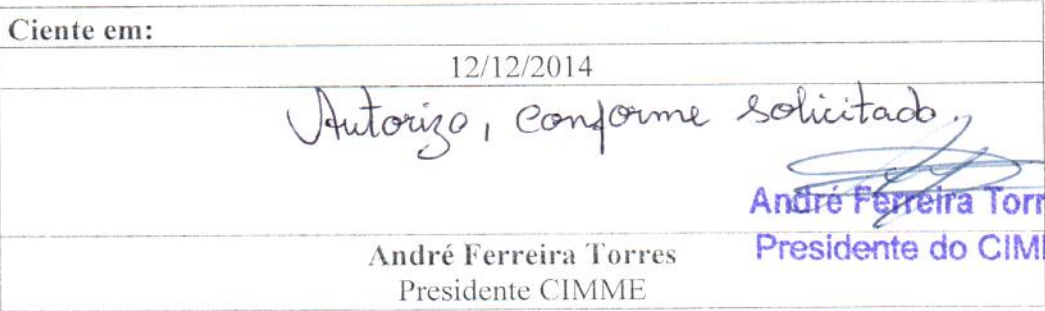 Ciente em:
12/12/2014
Autorizo, conforme solicitado.
André Ferreira Torr
Presidente do CIM
André Ferreira Torres
Presidente CIMME